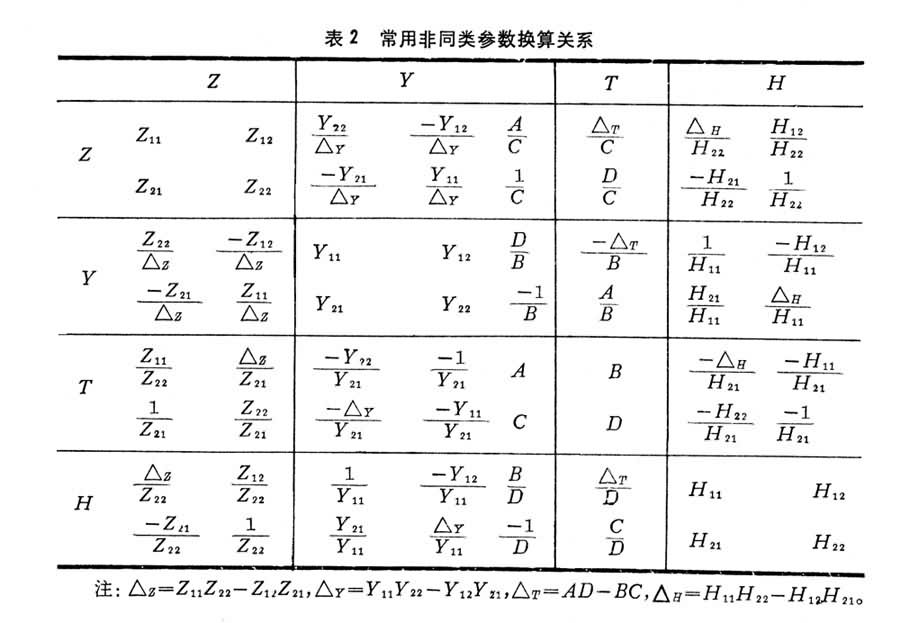 表2 常用非同类参数换算关系
Z Y T H
Z Z₁₁ Z₁₂ Y₂₂/△Y −Y₁₂/△Y A/C △T/C △H/H₂₂ H₁₂/H₂₂
Z₂₁ Z₂₂ −Y₂₁/△Y Y₁₁/△Y 1/C D/C −H₂₁/H₂₂ 1/H₂₂
Y Z₂₂/△Z −Z₁₂/△Z Y₁₁ Y₁₂ D/B −△T/B 1/H₁₁ −H₁₂/H₁₁
−Z₂₁/△Z Z₁₁/△Z Y₂₁ Y₂₂ −1/B A/B H₂₁/H₁₁ △H/H₁₁
T Z₁₁/Z₂₂ △Z/Z₂₁ −Y₂₂/Y₂₁ −1/Y₂₁ A B −△H/H₂₁ −H₁₁/H₂₁
1/Z₂₁ Z₂₂/Z₂₁ −△Y/Y₂₁ −Y₁₁/Y₂₁ C D −H₂₂/H₂₁ −1/H₂₁
H △Z/Z₂₂ Z₁₂/Z₂₂ 1/Y₁₁ −Y₁₂/Y₁₁ B/D △T/D H₁₁ H₁₂
−Z₂₁/Z₂₂ 1/Z₂₂ Y₂₁/Y₁₁ △Y/Y₁₁ −1/D C/D H₂₁ H₂₂
注: △Z=Z₁₁Z₂₂−Z₁₂Z₂₁,△Y=Y₁₁Y₂₂−Y₁₂Y₂₁,△T=AD−BC,△H=H₁₁H₂₂−H₁₂H₂₁。